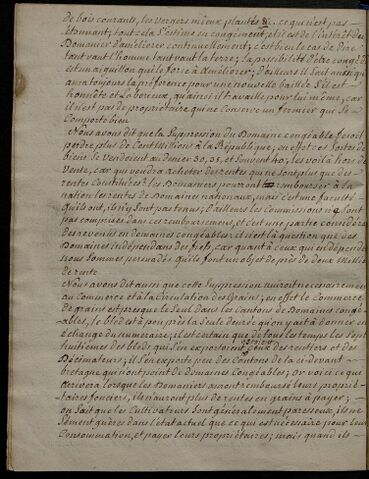 de bois courants, les vergers mieux plantés &c. ce qui n'est pas
étonnant; tout cela s'estime en congément, et il est de l'intérêt du
Domanier d'améliorer continuellement; c'est bien le cas de dire
tant vaut l'homme tant vaut la terre; la possibilité d'être congédié
est un aiguillon qui le force à Améliorer; D'ailleurs il sait aussi qu'il
aura toujours la préférence pour une nouvelle baillée s'il est
honnête et Laborieux, quoiqu'il travaille pour lui même, car
il n'est pas de propriétaire qui ne Conserve un fermier que se
Comporte bien
Nous avons dit que la Suppression du Domaine congéable feroit
perdre plus de Cent Millions à la République; en effet ces Sortes de
biens se Vendoient au denier 30, 35, et Souvent 40; les voilà hors de
Vente, car qui voudra acheter des rentes qui ne sont plus que des
rentes Constituées? les Domaniers pourront rembourser à la
nation les rentes de Domaines nationaux, mais c'est une faculté
qu'ils ont, ils n'y sont pas tenus; d'ailleurs les Commissions ne sont
pas comprises dans ces remboursements, et c'est une partie considérable
des revenus en domaines congéables: il n'est là question que des
Domaines indépendans des fiefs, car quant à ceux qui en dépendent
nous Sommes persuadés qu'ils font un objet de près de deux Millions
de rente
Nous avons dit aussi que cette Suppression nuiroit nécessairement
au Commerce et à la Circulation des Grains; en effet le Commerce
de grain est presque le Seul dans les Cantons de Domaines congé-
ables, le bled est à peu près la seule denrée qu'on y ait à donner en
échange du numéraire; il est certain que de tous les temps les Sept
huitièmes des bleds qui s'en exportoient, venoient des rentiers et des
Décimateurs; il s'en exporte peu des Cantons de la ci-devant
bretagne qui n'ont point de Domaines Congéables; Or voici ce qui
arrivera lorsque les Domaniers auront remboursé leurs proprié-
taires fonciers, ils n'auront plus de rentes en grains à payer;
on Sait que les Cultivateurs Sont généralement paresseux, ils ne
sèment guères dans l'état actuel que ce qui est nécessaire pour leur
Consommation, et payer leurs propriétaires; mais quand ils